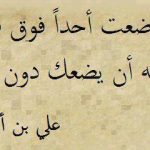 ضعت أحداً فوق
ه أن يضعك دون
علي بن أ